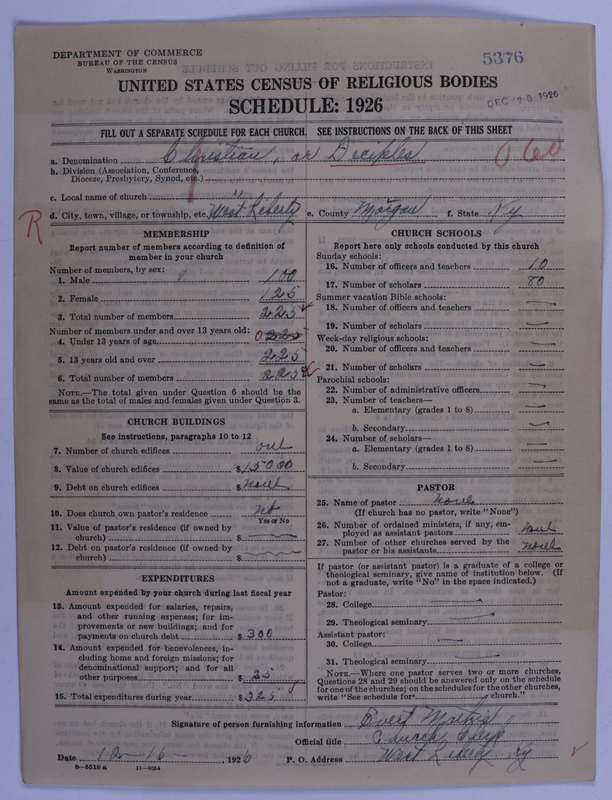 DEPARTMENT OF COMMERCE
BUREAU OF THE CENSUS
WASHINGTON
5376
UNITED STATES CENSUS OF RELIGIOUS BODIES
SCHEDULE: 1926
DEC 20 1926
FILL OUT A SEPARATE SCHEDULE FOR EACH CHURCH. SEE INSTRUCTIONS ON THE BACK OF THIS SHEET
a. Denomination Christian, or Deciples 060
b. Division (Association, Conference, Diocese, Presbytery, Synod, etc.)
c. Local name of church " "
R d. City, town, village, or township, etc. West Liberty e. County Morgan f. State Ky
MEMBERSHIP
Report number of members according to definition of
member in your church
Number of members, by sex:
1. Male 100
2. Female 125
3. Total number of members 225
Number of members under and over 13 years old:
4. Under 13 years of age 0 225
5. 13 years old and over 225
6. Total number of members 225
NOTE.—The total given under Question 6 should be
same as the total of males and females given under Question 3.
CHURCH BUILDINGS
See instructions, paragraphs 10 to 12
7. Number of church edifices one
8. Value of church edifices $15000
9. Debt on church edifices $none
10. Does church own pastor's residence no
Yes or No
11. Value of pastor's residence (if owned by
church) $
12. Debt on pastor's residence (if owned by
church) $
EXPENDITURES
Amount expended by your church during last fiscal year
13. Amount expended for salaries, repairs,
and other running expenses; for im-
provements or new buildings; and for
payments on church debt $300
14. Amount expended for benevolences, in-
cluding home and foreign missions; for
denominational support; and for all
other purposes $25
15. Total expenditures during year $325
CHURCH SCHOOLS
Report here only schools conducted by this church
Sunday schools:
16. Number of officers and teachers 10
17. Number of scholars 80
Summer vacation Bible schools:
18. Number of officers and teachers
19. Number of scholars
Week-day religious schools:
20. Number of officers and teachers
21. Number of scholars
Parochial schools:
22. Number of administrative officers
23. Number of teachers—
a. Elementary (grades 1 to 8)
b. Secondary
24. Number of scholars—
a. Elementary (grades 1 to 8)
b. Secondary
PASTOR
25. Name of pastor None
(If church has no pastor, write "None")
26. Number of ordained ministers, if any, em-
ployed as assistant pastors None
27. Number of other churches served by the
pastor or his assistants None
If pastor (or assistant pastor) is a graduate of a college or
theological seminary, give name of institution below. (If
not a graduate, write "No" in the space indicated.)
Pastor:
28. College
29. Theological seminary
Assistant pastor:
30. College
31. Theological seminary
NOTE.—Where one pastor serves two or more churches,
Questions 28 and 29 should be answered only on the schedule
for one of the churches; on the schedules for the other churches,
write "See schedule for church."
Signature of person furnishing information Evert
Official title Church Clerk
Date 12-16-, 1926 P. O. Address West Liberty Ky
8—5318 a 11—9084